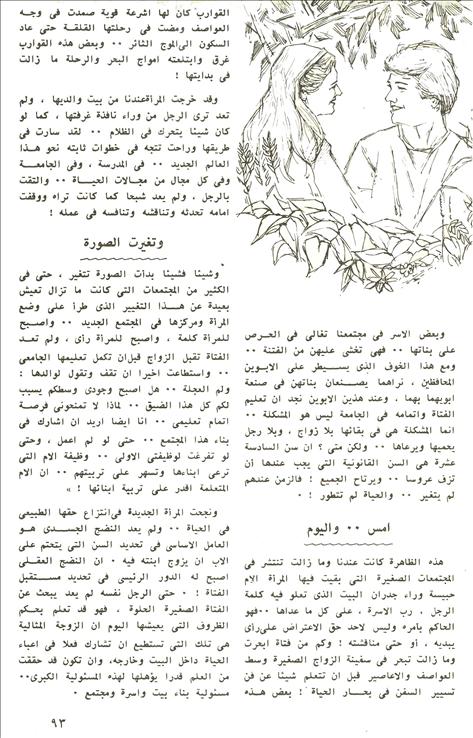 وبعض الاسر في مجتمعنا تغالي في الحرص
على بناتها ٠٠ فهى تخشى عليهن من الفتنة ٠٠
ومع هذا الخوف الذى يسيطر على الابوين
المحافظين ، نراهما يصنعان بناتهن فى صنعة
ابويهما بهما ، وعند هذين الابوين نجد ان تعليم
الفتاة واتمامه فى الجامعة ليس هو المشكلة ٠٠
انما المشكلة هى فى بقائها بلا زواج ، وبلا رجل
يعميها ويرعاها ٠٠ ولكن متى ؟ ان سن السادسة
عشرة هى السن القانونية التى يجب عندها أن
تزف عروسا ٠٠ ويرتاح الجميع ! فالزمن عندهم
لم يتغير ٠٠ والحياة لم تتطور ! ٠
امس ٠٠ واليوم
هذه الظاهرة كانت عندنا وما زالت تنتشر فى
المجتمعات الصغيرة التى بقيت فيها المرأة الام
حبيسة وراء جدران البيت الذى تعلو فيه كلمة
الرجل ، رب الاسرة ، على كل ما عداها ٠٠فهو
الحاكم بامره وليس لاحد حق الاعتراض على رأى
يبديه ، أو حتى مناقشته ! وكم من فتاة ابحرت
وما زالت تبحر فى سفينة الزواج الصغيرة وسط
العواصف والاعاصير قبل ان تتعلم شيئا عن فن
تسيير السفن فى بحار الحياة ! بعض هذه
القوارب كان لها اشرعة قوية صمدت فى وجه
العواصف ومضت فى رحلتها القلقة حتى عاد
السكون الى الموج الثائر ٠٠ وبعض هذه القوارب
غرق وابتلعته امواج البحر والرحلة ما زالت
فى بدايتها !
وقد خرجت المرأة عندنا من بيت والديها ، ولم
تعد ترى الرجل من وراء نافذة غرفتها ، كما لو
كان شيئا يتحرك فى الظلام ٠٠ لقد سارت فى
طريقها وراحت تتجه فى خطوات ثابته نحو هذا
العالم الجديد ٠٠ فى المدرسة ، وفى الجامعة
وفى كل مجال من مجالات الحياة ٠٠ والتقت
بالرجل ، ولم يعد شبحا كما كانت تراه ووقفت
امامه تحدثه وتناقشه وتنافسه فى عمله !
وتغيرت الصورة
وشيئا فشيئا بدأت الصورة تتغير ، حتى فى
الكثير من المجتمعات التى كانت ما تزال تعيش
بعيدة عن هذا التغيير الذى طرأ على وضع
المرأة ومركزها فى المجتمع الجديد ٠٠ واصبح
للمرأة كلمة ، واصبح للمرأة رأى ، ولم تعد
الفتاة تقبل الزواج قبل ان تكمل تعليمها الجامعى
٠٠ واستطاعت اخيرا ان تقف وتقول لوالدها :
ولم العجلة ٠٠ هل اصبح وجودى وسطكم يسبب
لكم كل هذا الضيق ٠٠ لماذا لا تمنحونى فرصة
اتمام تعليمى ٠٠ انا ايضا اريد ان اشارك فى
بناء هذا المجتمع ٠٠ حتى لو لم اعمل ، وحتى
لو تفرغت لوظيفتى الاولى ٠٠ وظيفة الام التى
ترعى ابناءها وتسهر على تربيتهم ٠٠ ان الام
المتعلمة اقدر على تربية ابنائها ! »
ونجحت المرأة الجديدة فى انتزاع حقها الطبيعى
فى الحياة ٠٠ ولم يعد النضج الجسدى هو
العامل الاساسى فى تحديد السن التى يتحتم على
الاب ان يزوج ابنته فيه ٠ ان النضج العقلى
اصبح له الدور الرئيسى فى تحديد مستقبل
الفتاة ! ٠ حتى الرجل نفسه لم يعد يبحث عن
الفتاة الصغيرة الحلوة ، فهو قد تعلم بحكم
الظروف التى يعيشها اليوم ان الزوجة المثالية
هى تلك التى تستطيع ان تشارك فعلا فى اعباء
الحياة داخل البيت وخارجه، وان تكون قد حققت
من العلم قدرا يؤهلها لهذه المسئولية الكبرى٠٠
مسئولية بناء بيت واسرة ومجتمع ٠
٩٣